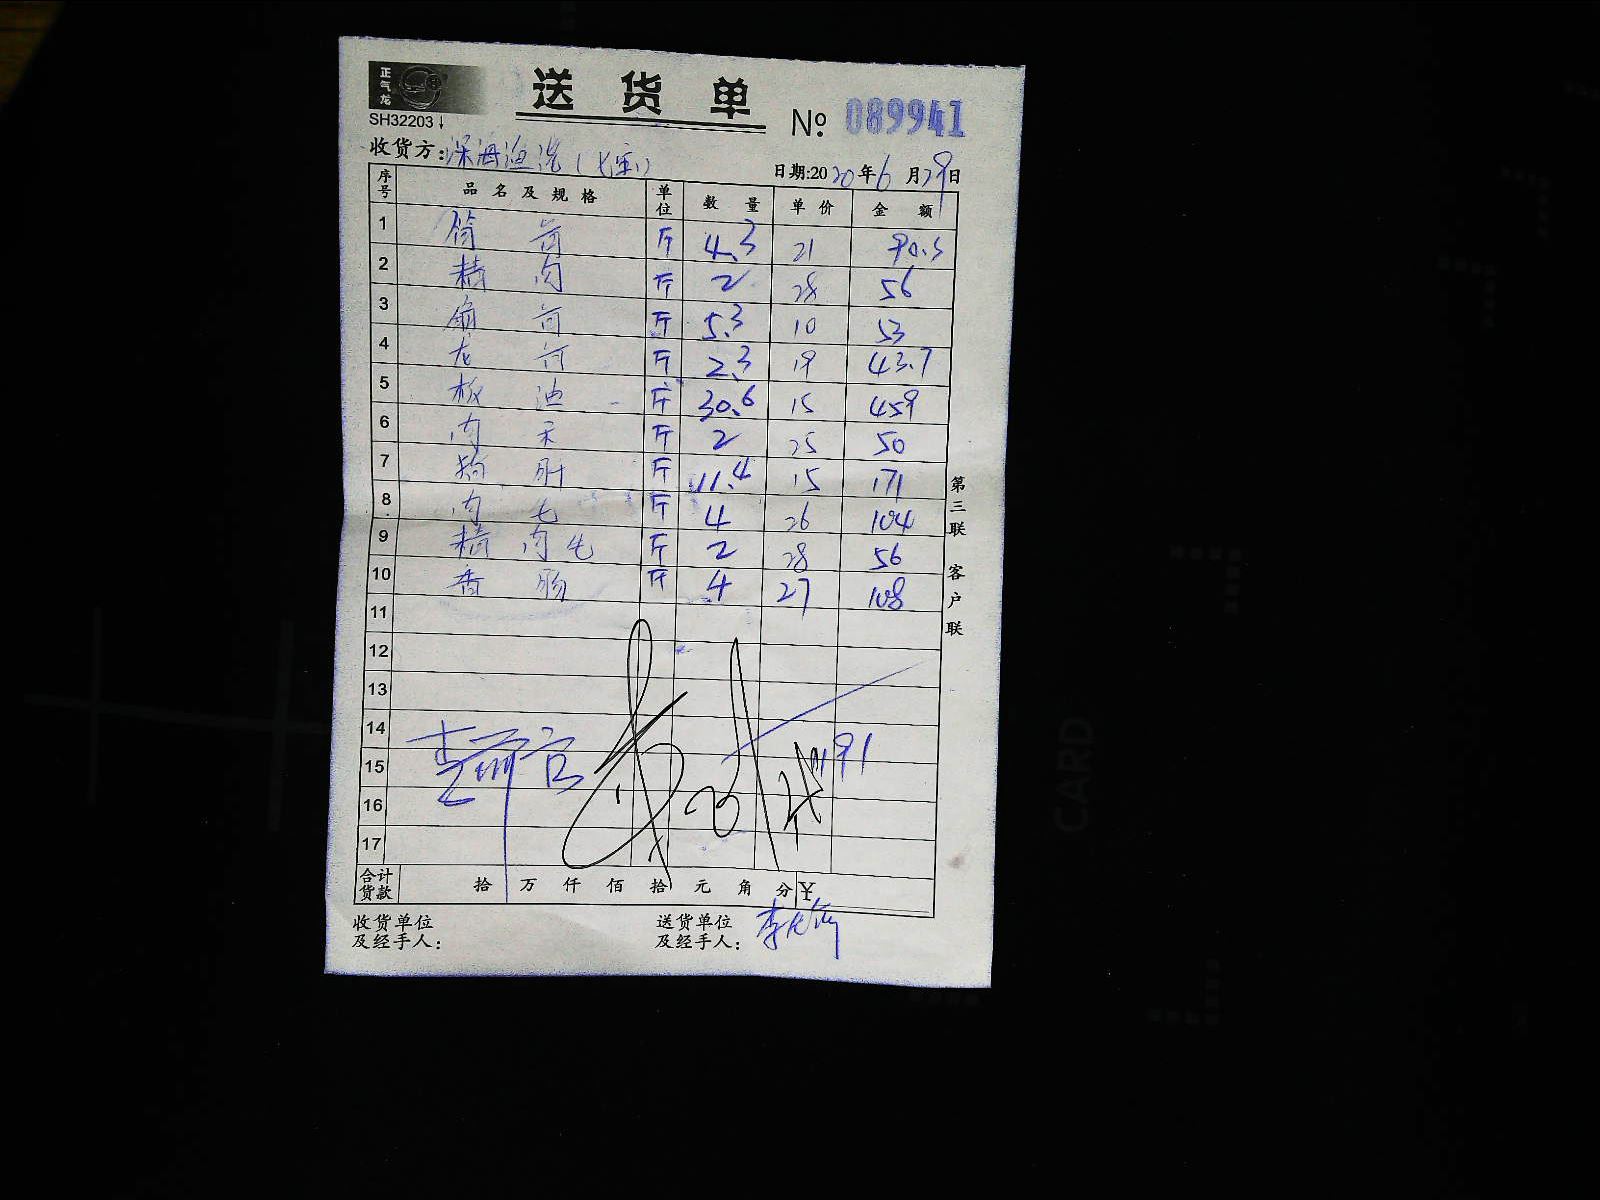 正气龙
送货单
SH32203
№ 089941
收货方: 深海渔港(七宝)
日期:2020年6月29日
序号 品名及规格 单位 数量 单价 金额
1 筒骨 斤 4.3 21 90.3
2 精肉 斤 2 28 56
3 扇骨 斤 5.3 10 53
4 龙骨 斤 2.3 19 43.7
5 板油 斤 30.6 15 459
6 肉 斤 2 25 50
7 猪肝 斤 11.4 15 171
8 肉 斤 4 26 104
9 精肉 斤 2 28 56
10 香肠 斤 4 27 108
11
12
13
14
15 1191
16
17
合计货款 拾 万 仟 佰 拾 元 角 分 ¥
收货单位及经手人:
送货单位及经手人: 李
第三联 客户联